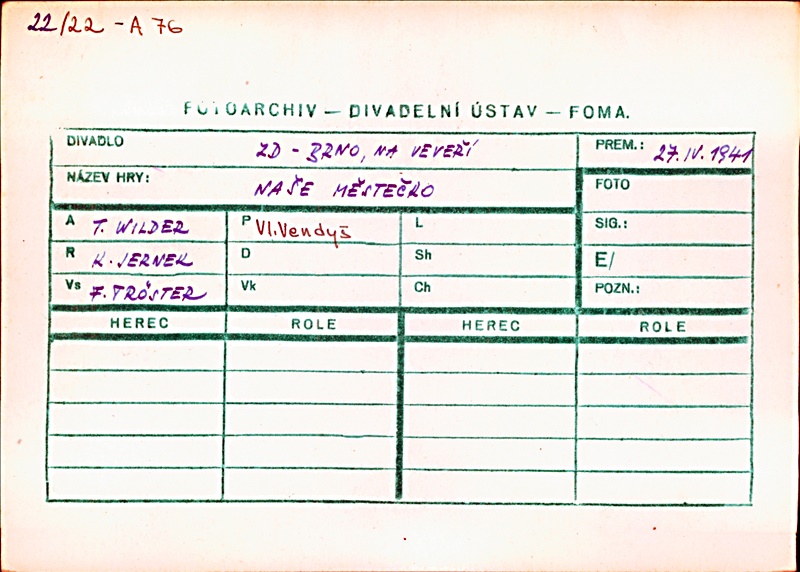 22/22 - A 76
FOTOARCHIV — DIVADELNÍ ÚSTAV — FOMA.
DIVADLO ZD - BRNO, NA VEVEŘÍ PREM.: 27. IV. 1941
NÁZEV HRY: NAŠE MĚSTEČKO FOTO
A T. WILDER P Vl. Vendyš L SIG.:
R K. JERNEK D Sh E/
Vs F. TRÖSTER Vk Ch POZN.:
HEREC ROLE HEREC ROLE